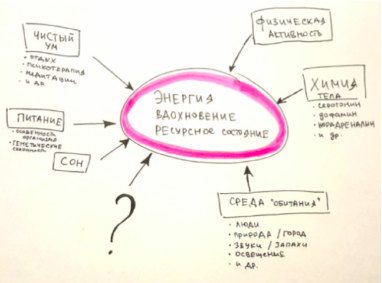 ЧИСТЫЙ
УМ
• ОТДЫХ
• ПСИХОТЕРАПИЯ
• МЕДИТАЦИИ
• И ДР.
ФИЗИЧЕСКАЯ
АКТИВНОСТЬ
ХИМИЯ
ТЕЛА
• СЕРОТОНИН
• ДОФАМИН
• НОРАДРЕНАЛИН
• И ДР.
ЭНЕРГИЯ
ВДОХНОВЕНИЕ
РЕСУРСНОЕ СОСТОЯНИЕ
ПИТАНИЕ
ОРГАНИЗМА
• ГЕНЕТИЧЕСКИЕ
СОН
?
СРЕДА "ОБИТАНИЯ"
• ЛЮДИ
• ПРИРОДА / ГОРОД
• ЗВУКИ / ЗАПАХИ
• ОСВЕЩЕНИЕ
• И ДР.